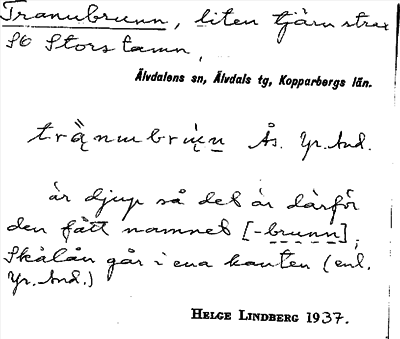 Tranubrunn, liten tjärn strax
SO Storstamn,
Älvdalens sn, Älvdals tg, Kopparbergs län.
Ås. Yr. And.
är djup så det är därför
den fått namnet [-brunn],
Skålån går i ena kanten (enl.
Yr. And.)
HELGE LINDBERG 1937.